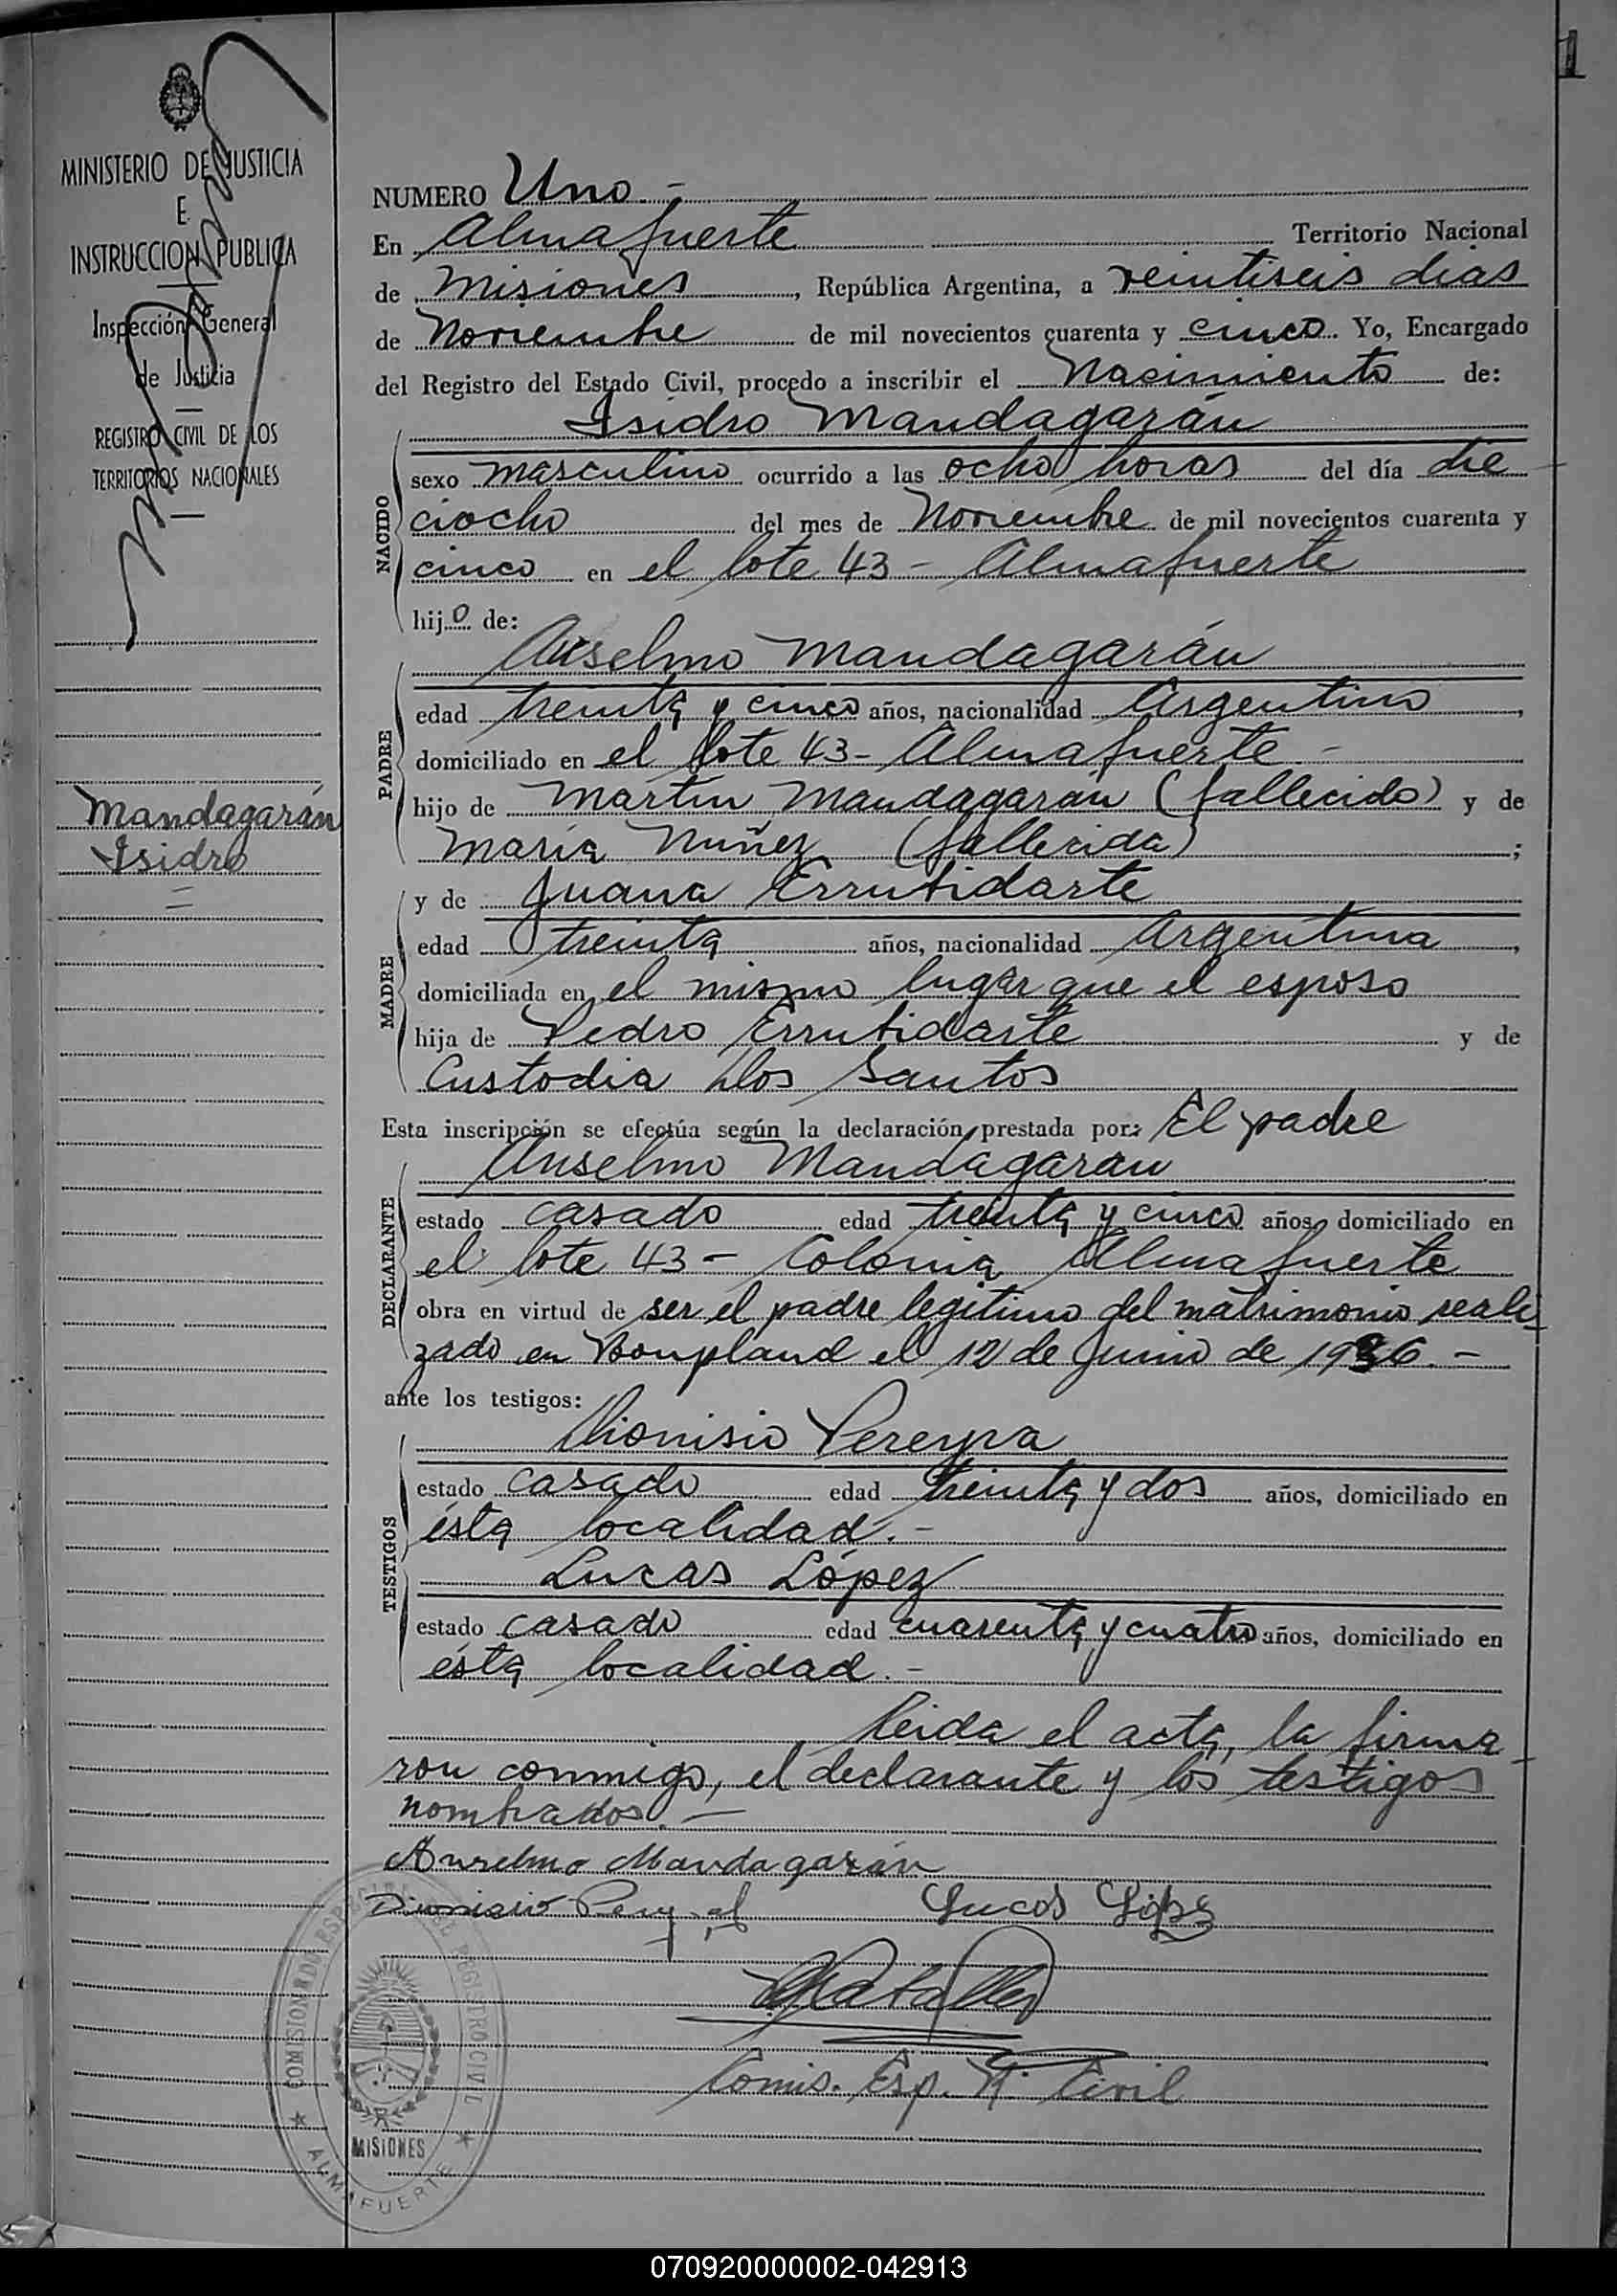 1
MINISTERIO DE JUSTICIA
E
INSTRUCCION PUBLICA
Inspección General
de Justicia
REGISTRO CIVIL DE LOS
TERRITORIOS NACIONALES
Mandagarán
Isidro
NUMERO Uno.-
En Almafuerte Territorio Nacional
de Misiones, República Argentina, a veintiseis dias
de Noviembre de mil novecientos cuarenta y cinco. Yo, Encargado
del Registro del Estado Civil, procedo a inscribir el Nacimiento de:
Isidro Mandagarán
NACIDO
sexo masculino ocurrido a las ocho horas del día die
ciocho del mes de Noviembre de mil novecientos cuarenta y
cinco en el lote 43 - Almafuerte
hijo de:
Anselmo Mandagarán
PADRE
edad treinta y cinco años, nacionalidad Argentino,
domiciliado en el lote 43 - Almafuerte.-
hijo de Martín Mandagarán (fallecido) y de
María Nuñez (fallecida);
MADRE
y de Juana Errutidarte
edad treinta años, nacionalidad Argentina,
domiciliada en el mismo lugar que el esposo
hija de Pedro Errutidarte y de
Custodia Dos Santos
Esta inscripción se efectúa según la declaración prestada por: El padre
Anselmo Mandagaran
DECLARANTE
estado casado edad treinta y cinco años, domiciliado en
el lote 43 - Colonia Almafuerte
obra en virtud de ser el padre legitimo del matrimonio reali
zado en Bonpland el 12 de Junio de 1936.-
ante los testigos:
Dionisio Pereyra
TESTIGOS
estado casado edad treinta y dos años, domiciliado en
ésta localidad.-
Lucas López
estado casado edad cuarenta y cuatro años, domiciliado en
ésta localidad.-
Leida el acta, la firma
ron conmigo, el declarante y los testigos
nombrados.-
Anselmo Mandagarán
Dionisio Lucas López
Comis. Esp. R. Civil
COMISIONADO ESPECIAL DEL REGISTRO CIVIL
MISIONES
ALMAFUERTE
070920000002-042913